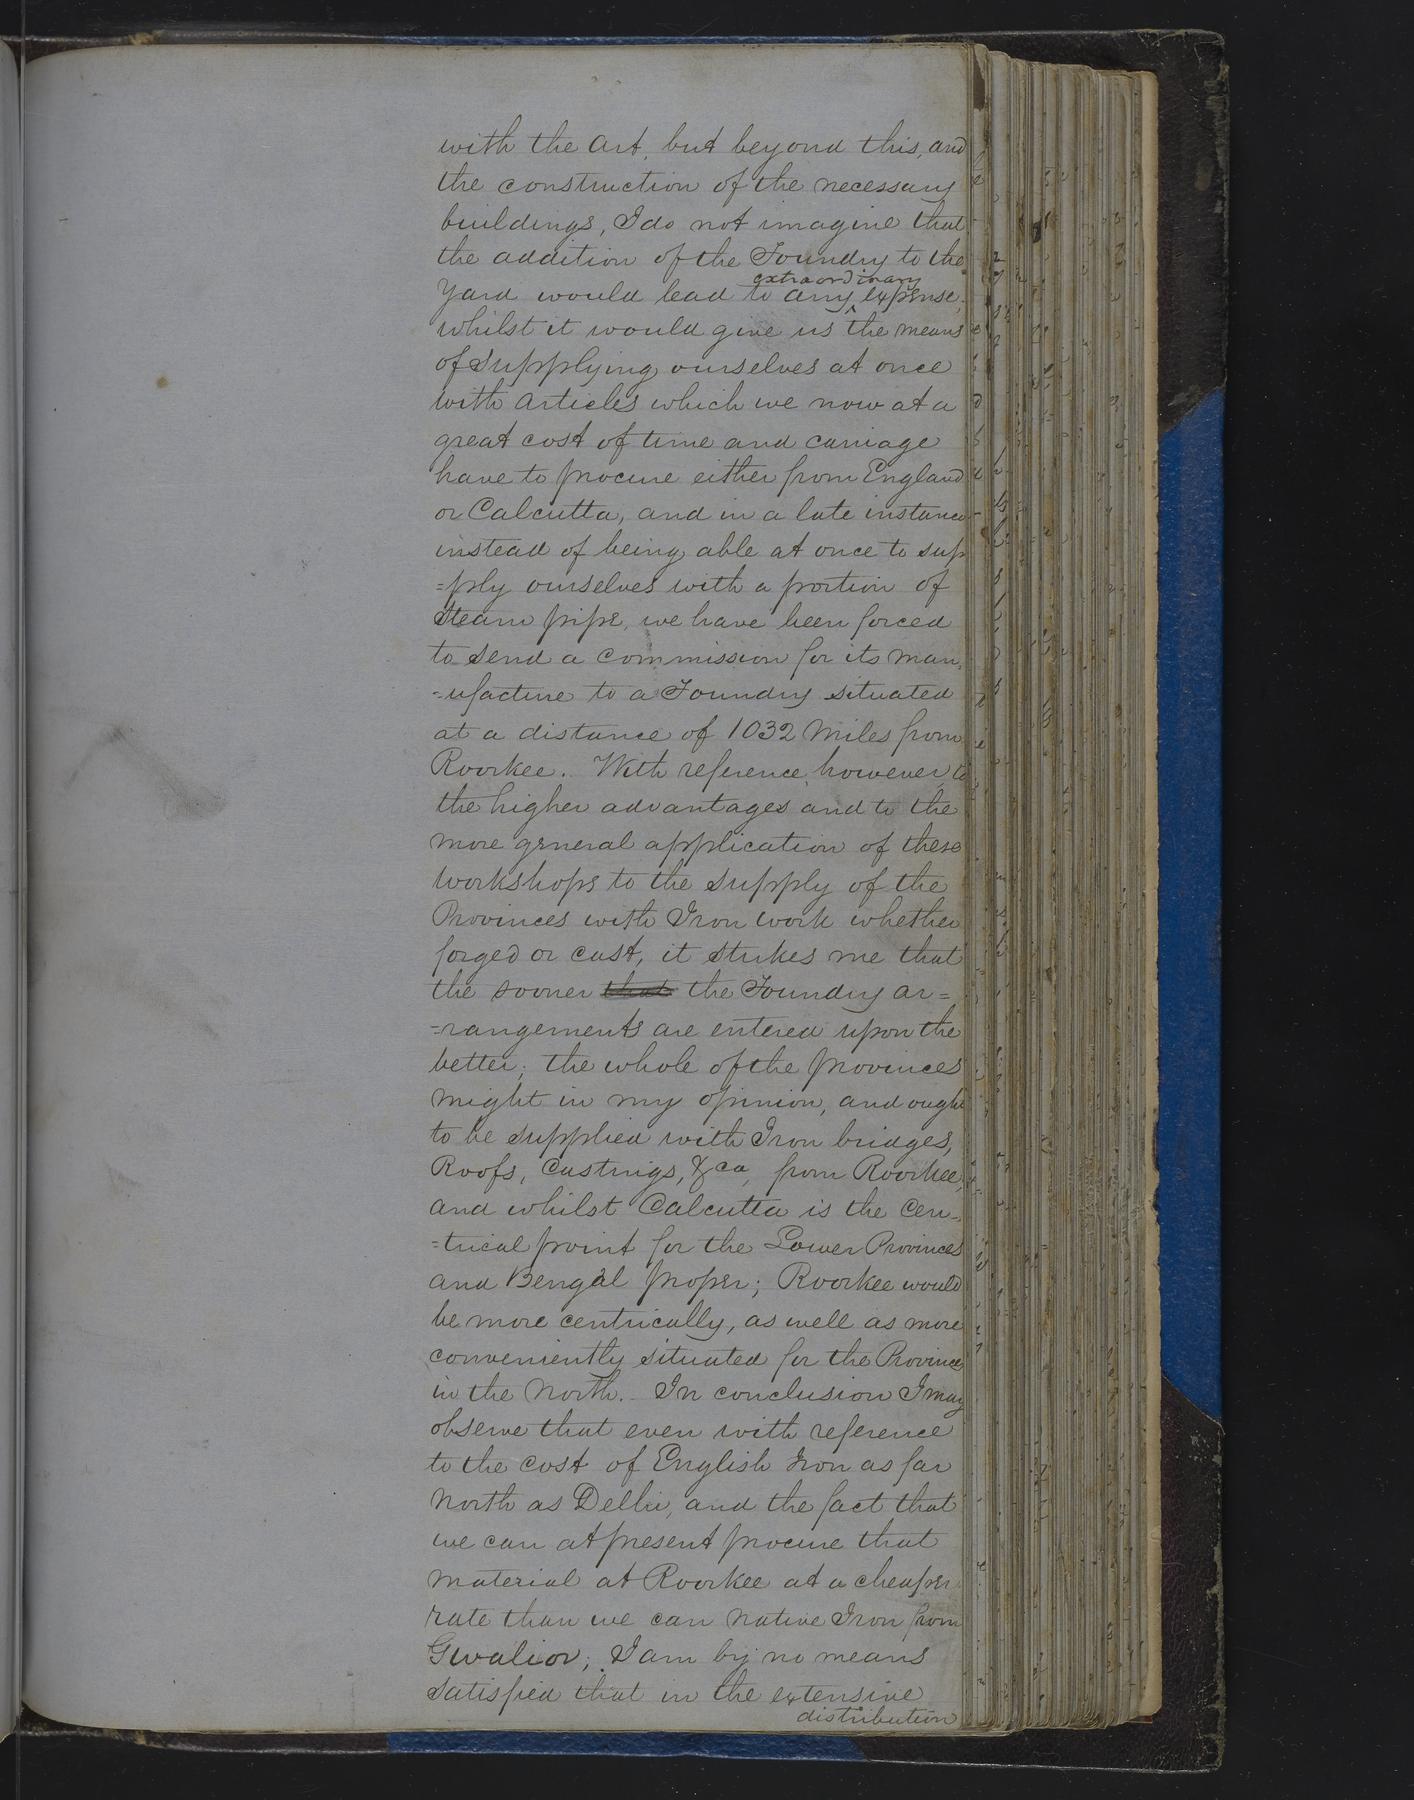 with the Art, but beyond this, and
the construction of the necessary
buildings, I do not imagine that
the addition of the Foundry to the
extraordinary
Yard would lead to any ^ expense,
whilst it would give us the means
of supplying ourselves at once
with Articles which we now at a
great cost of time and carriage
have to procure either from England
or Calcutta, and in a late instance
instead of being able at once to sup
=ply ourselves with a portion of
Steam pipe, we have been forced
to send a commission for its man,
=ufacture to a Foundry situated
at a distance of 1032 Miles from
Roorkee. With reference, however, to
the higher advantages and to the
more general application of these
workshops to the supply of the
Provinces with Iron work whether
forged or cast, it strikes me that
the sooner that the Foundry ar=
=rangements are entered upon the
better; the whole of the provinces
might in my opinion, and ought
to be supplied with Iron bridges,
Roofs, Castings, &ca, from Roorkee,
and whilst Calcutta is the Cen=
=trical point for the Lower Provinces
and Bengal proper; Roorkee would
be more centrically, as well as more
conveniently situated for the Provinces
in the North. In conclusion I may
observe that even with reference
to the cost of English Iron as far
North as Delhi, and the fact that
we can at present procure that
material at Roorkee at a cheaper
rate than we can native Iron from
Gwalior; I am by no means
satisfied that in the extensive
distribution